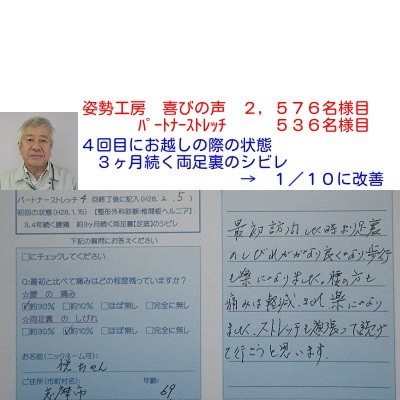 姿勢工房　喜びの声　２，５７６名様目
ﾊﾟｰﾄﾅｰｽﾄﾚｯﾁ　５３６名様目
４回目にお越しの際の状態
３ヶ月続く両足裏のシビレ
→　１／１０に改善
パートナーストレッチ 4 回終了後に記入(H28. 2. 5)
初回の状態(H28.1.15) 【整形外科診断:椎間板ヘルニア】
3,4年続く腰痛　約3ヶ月続く両足【足底】のシビレ
下記の質問にお答えください
□にチェックしてください
Q:最初と比べて痛みはどの程度残っていますか?
☆腰 の 痛み
☑約30% □約10% □ほぼ無し □完全に無し
☆両足裏 の しびれ
□約30% ☑約10% □ほぼ無し □完全に無し
お名前(ニックネーム可):
ちゃん
ご住所(市町村名):　年齢:
志摩市　69
最初訪問した時より足裏
のしびれがかなり良くなり歩行
も楽になりました。腰の方も
痛みは軽減され楽になり
ました。ストレッチも頑張って続け
て行こうと思います。